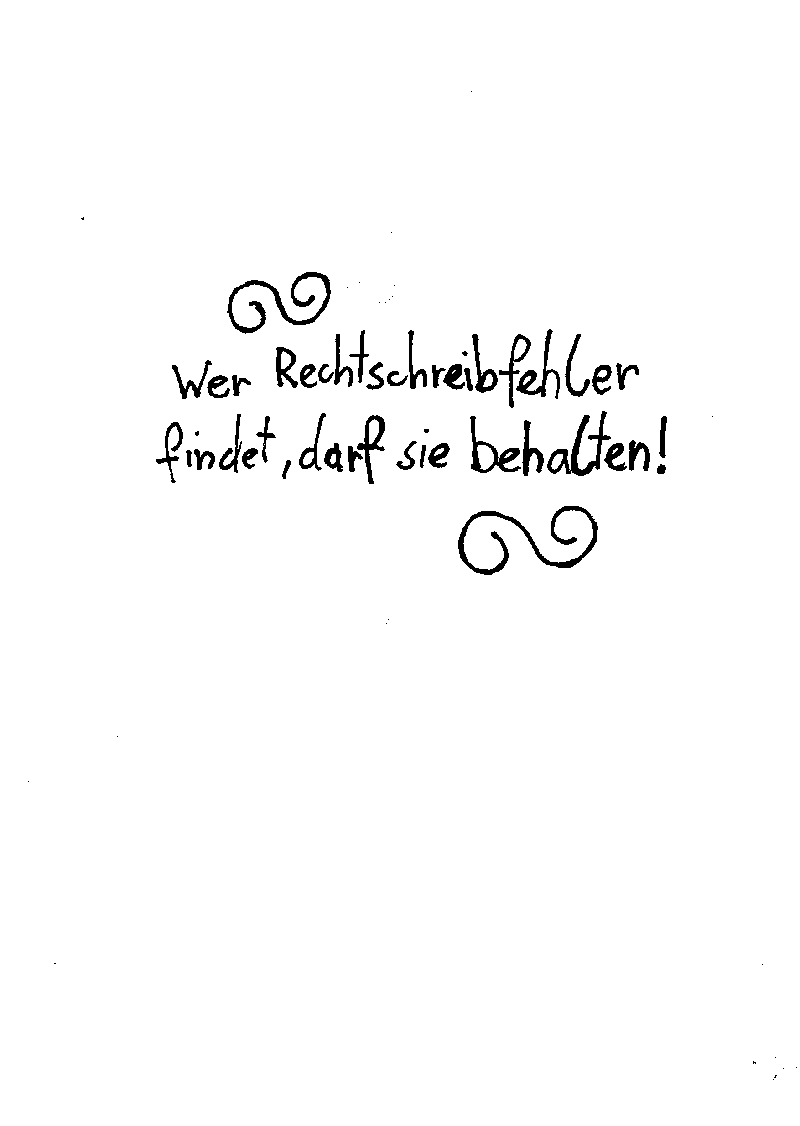 Wer Rechtschreibfehler
findet, darf sie behalten!